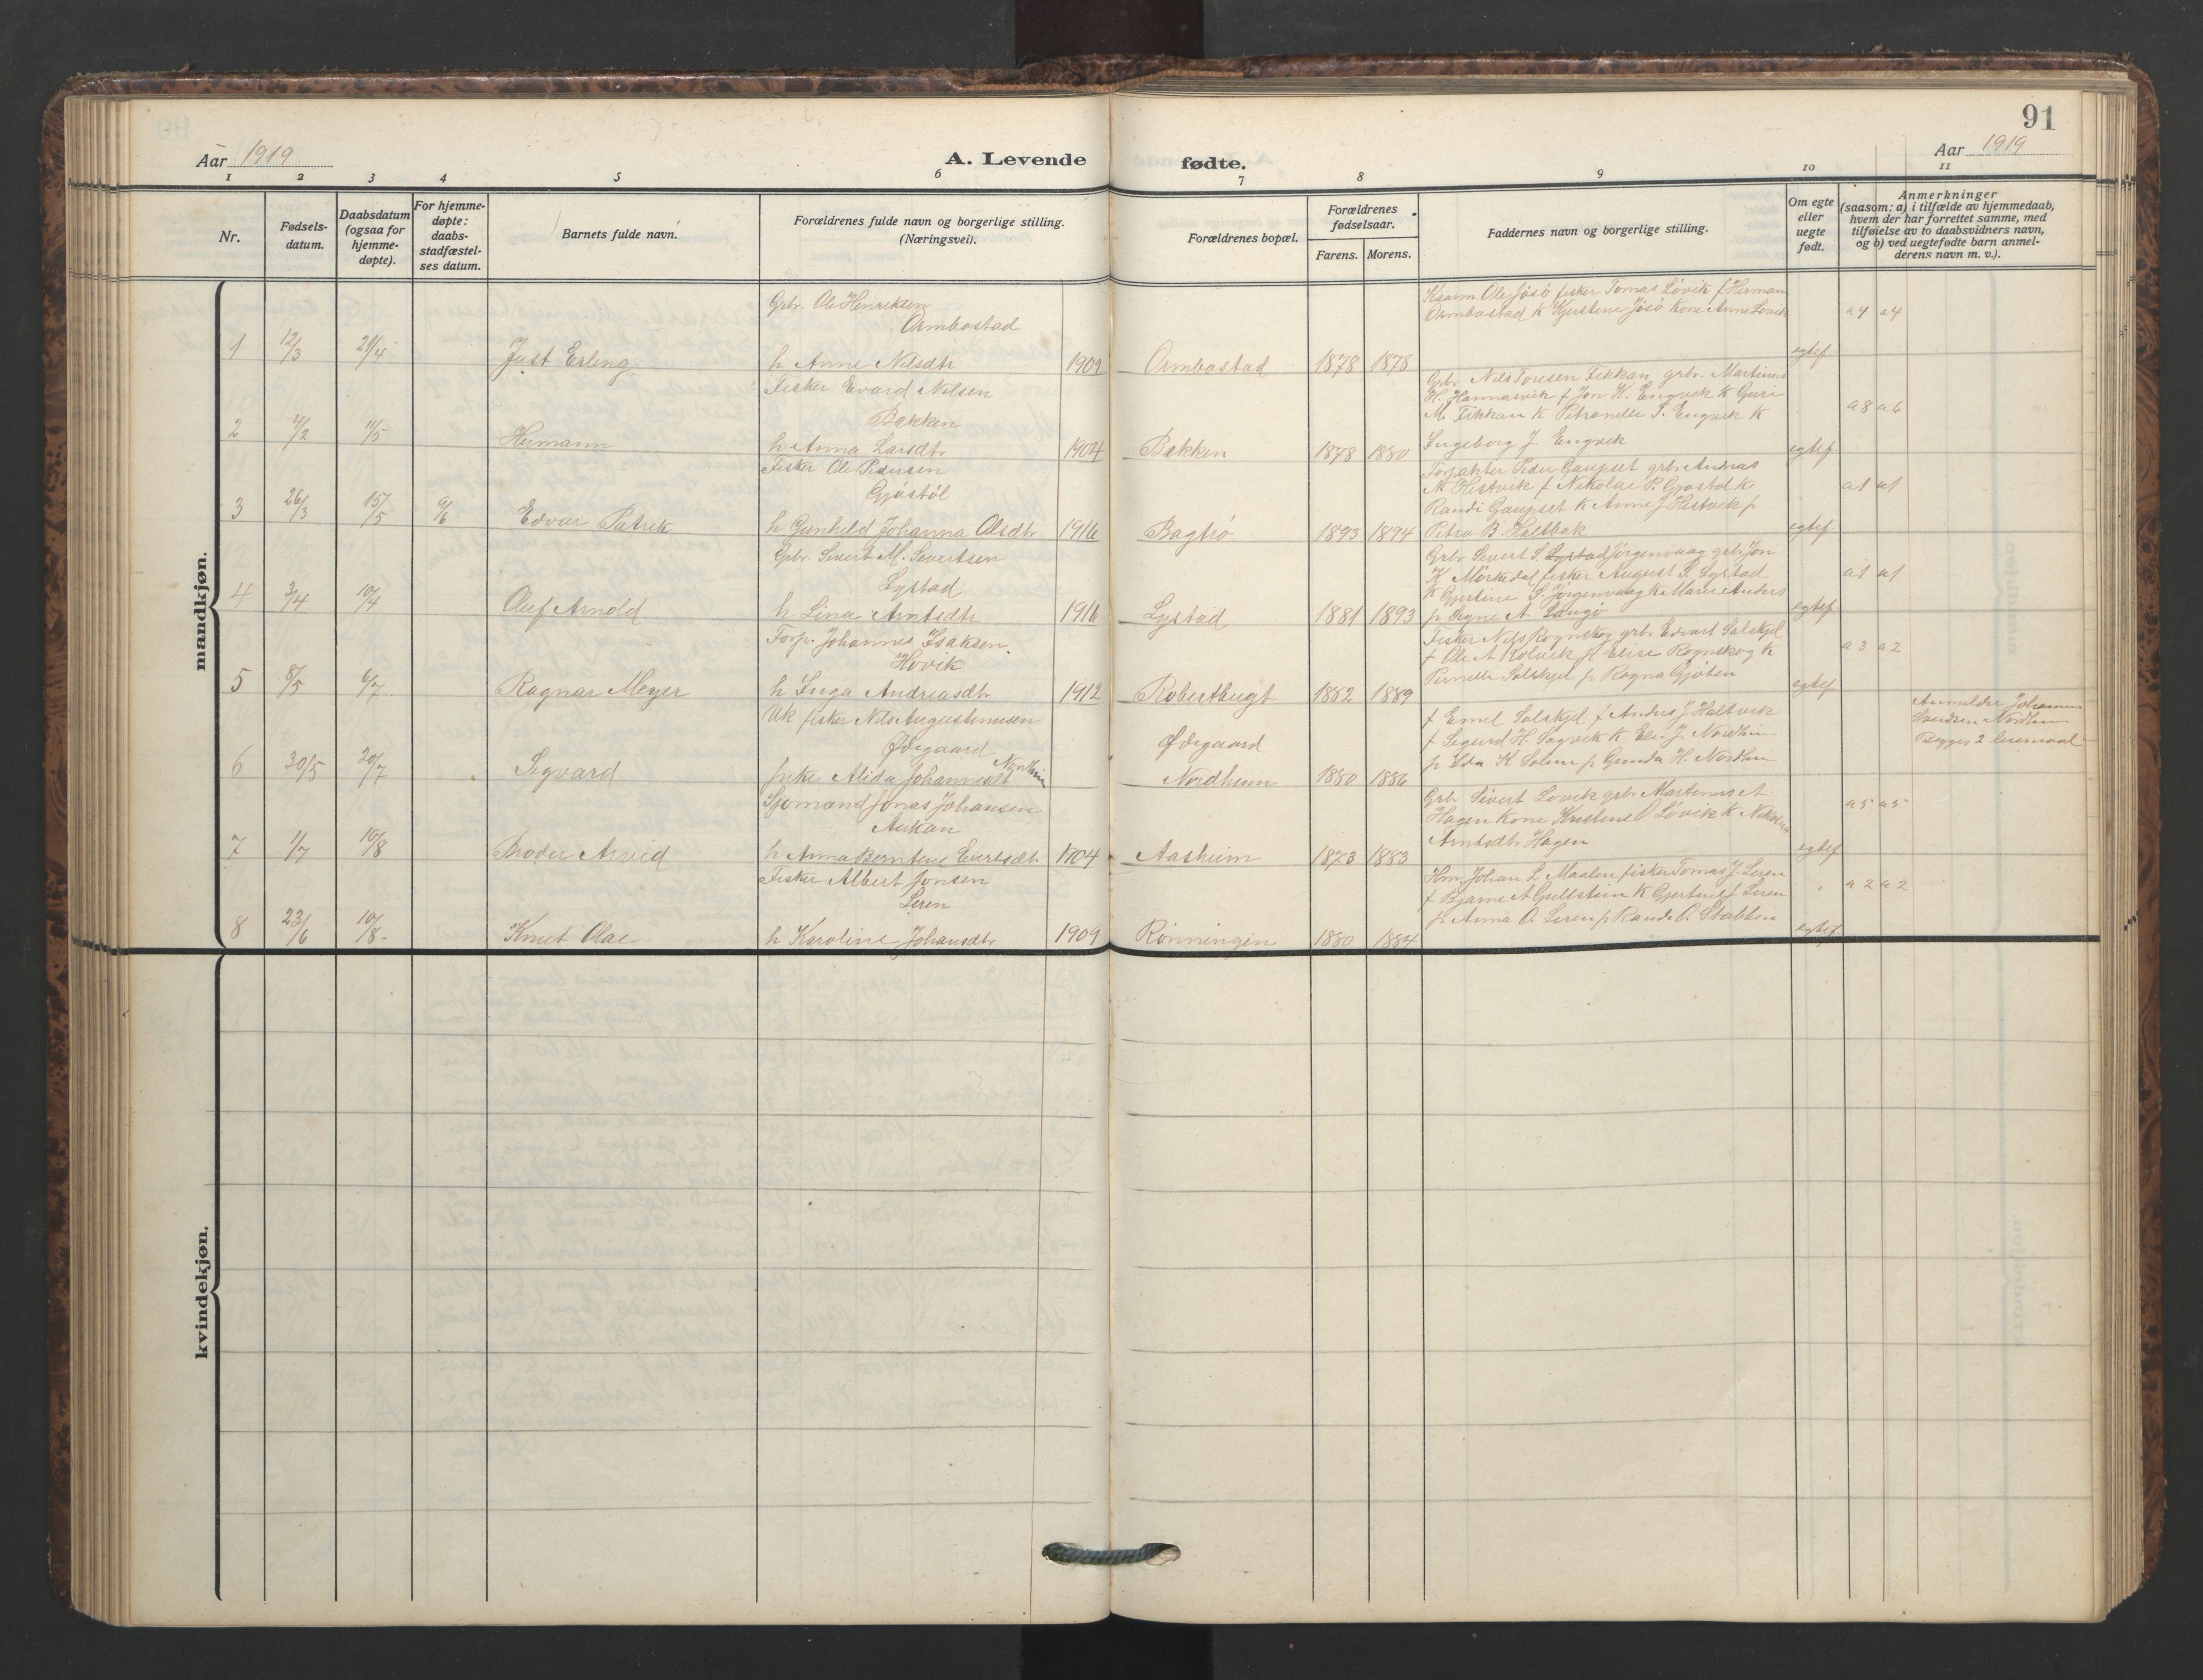 91
Aar 1919
A. Levende
fødte.
Aar 1919
1 2 3 4 5 6 7 8 9 10 11
Nr.
Fødsels-
datum.
Daabsdatum
(ogsaa for
hjemme-
døpte).
For hjemme-
døpte:
daabs-
stadfæstel-
ses datum.
Barnets fulde navn.
Forældrenes fulde navn og borgerlige stilling.
(Næringsvei).
Forældrenes bopæl.
Forældrenes
fødselsaar.
Farens. Morens.
Faddernes navn og borgerlige stilling.
Om egte
eller
uegte
født.
Anmerkninger
(saasom: a) i tilfælde av hjemmedaab,
hvem der har forrettet samme, med
tilføielse av to daabsvidners navn,
og b) ved uegtefødte barn anmel-
derens navn m. v.).
mandkjøn.
Grbr. Ole Henriksen
Ormbostad
1 12/3 21/4 Just Erling h Anne Nilsdtr 1909 Ormbostad 1878 1878
Ole Jøsø fisker Tomas Løvik f Herman
Ormbostad K Kjerstine Jøsø Kone Anne Løvik
egtef a4 a4
Fisker Evard Nilsen
Bekken
2 4/2 11/5 Hermann h Anna Larsdtr 1904 Bekken 1878 1880
Grbr Nils Toresen Fikkan grbr. Martinus
H. Hannasvik f Jon K. Engvik K Guri
M. Fikkan K Petronelle T. Engvik K
Ingeborg J Engvik
egtef a8 a6
Fisker Ole Pedersen
Gjøstøl
3 26/3 15/5 9/6 Edvar Patrik h Gunhild Johanna Olsdtr 1916 Bagtrø 1893 1894
Forpakter Peder Gaupset grbr Andreas
M Hestvik f Nikolai P. Gjøstøl K
Randi Gaupset K Anne J Hestvik p
Petra B. Haltbak
egtef a1 a1
Grbr. Sivert M. Sivertsen
Lystad
4 3/4 10/4 Oluf Arnold h Lina Arntsdtr 1916 Lystad 1881 1893
Grbr Sivert S. Lystad Jørgenvaag grbr Jon
K Mørkedal fisker August S. Lystad
K Gjertine S. Jørgenvaag K Marie Anders
p Signe A. Laugø
egtef a1 a1
Forp. Johannes Isaksen
Hovik
5 8/5 6/7 Ragnar Meyer h Inga Andreasdtr 1912 Robertbugt 1882 1889
Fisker Nils Rognskog grbr Edvart Solskjel
f Ole A Kolvik p Elise Rognskog K
Pernelle Solskjel p Ragna Gjøten
egtef a3 a2
Uk fisker Nils Augustinusen
Ødegaard
6 30/5 20/7 Sigvard pike Alida Johannesdt Nordheim
Ødegaard
Nordheim 1880 1886
f Emil Solskjel f Anders J Haltvik
f Sigurd H. Sagvik K Eli J. Nordhim
p Ida K Solem p Gunda H. Nordhim
Anmelder Johannes
Nordhim
Begges 2 leiermaal
Sjømand Jonas Johansen
Aukan
7 1/7 10/8 Broder Arvid h Anna Berntine Evertsdtr 1904 Aasheim 1873 1883
Grbr Sivert Lovik grbr Martinus A
Hagen Kone Kristine O Løvik K Nikoline
Arntsdtr Hagen
egtef a5 a5
Fisker Albert Jonsen
Leren
8 23/6 10/8 Knut Olae h Karoline Johansdtr 1909 Rønningen 1880 1884
Hm. Johan L Maalen fisker Tomas J. Leren
f Bjarne A Gullstein K Gjertrud J Leren
p Anna O. Leren p Randi O. Stabben
egtef a2 a2
kvindekjøn.